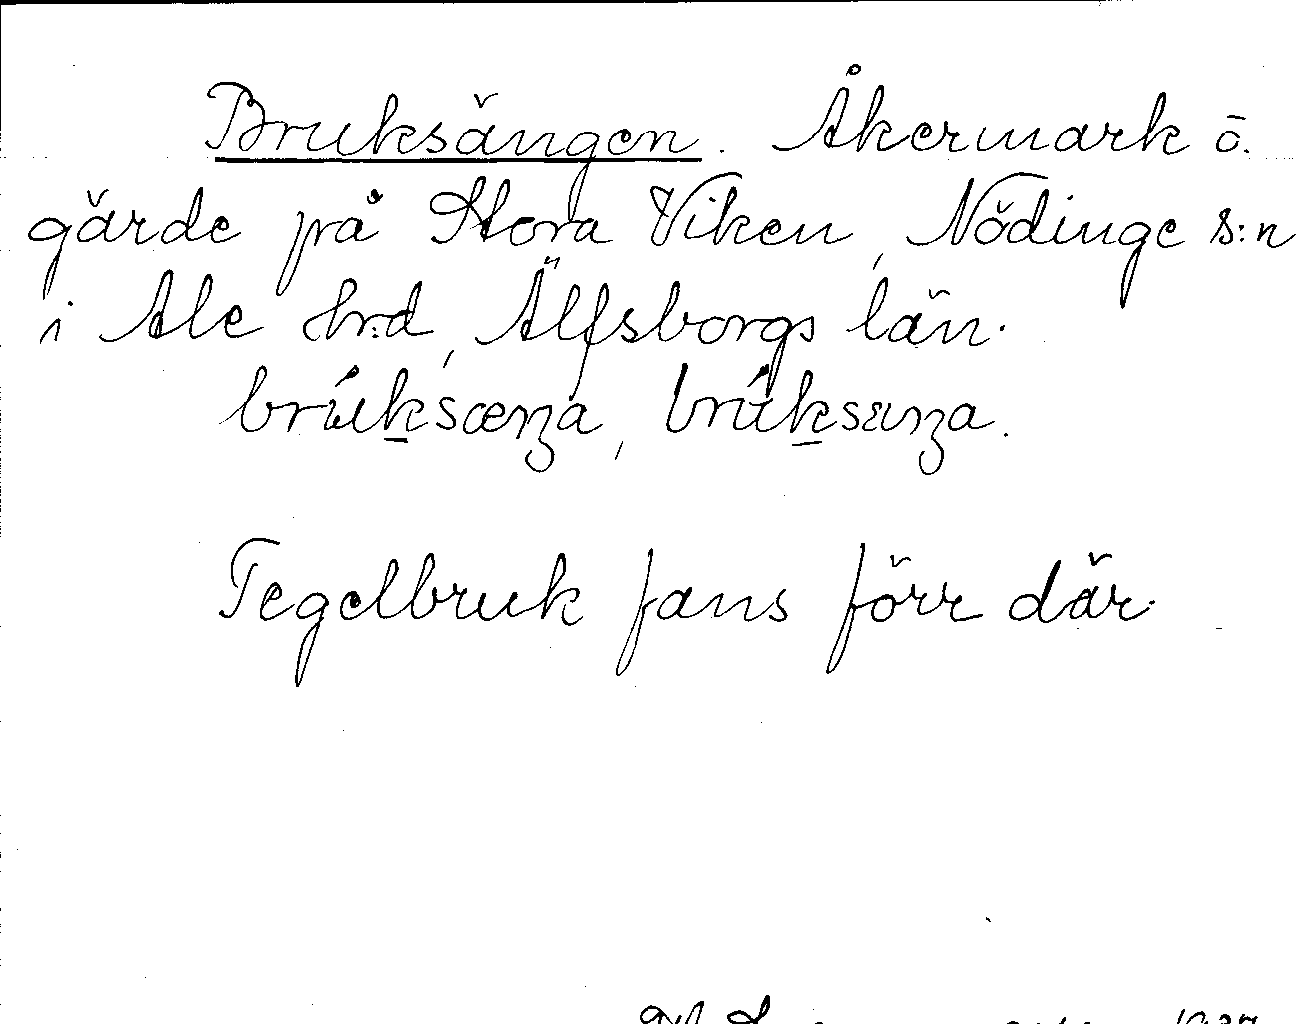 Bruksängen. Åkermark ō.
gärde på Stora Viken, Nödinge s:n
i Ale hrd, Älfsborgs län.
brúksænʒa, brúksɪnʒa.
Tegelbruk fans förr där.